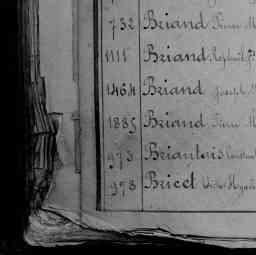 732 Briand Pierre M
1111 Briand Raphaël
1464 Briand Joseph M
1885 Briand Pierre M
973 Briantais Constant
978 Bricet